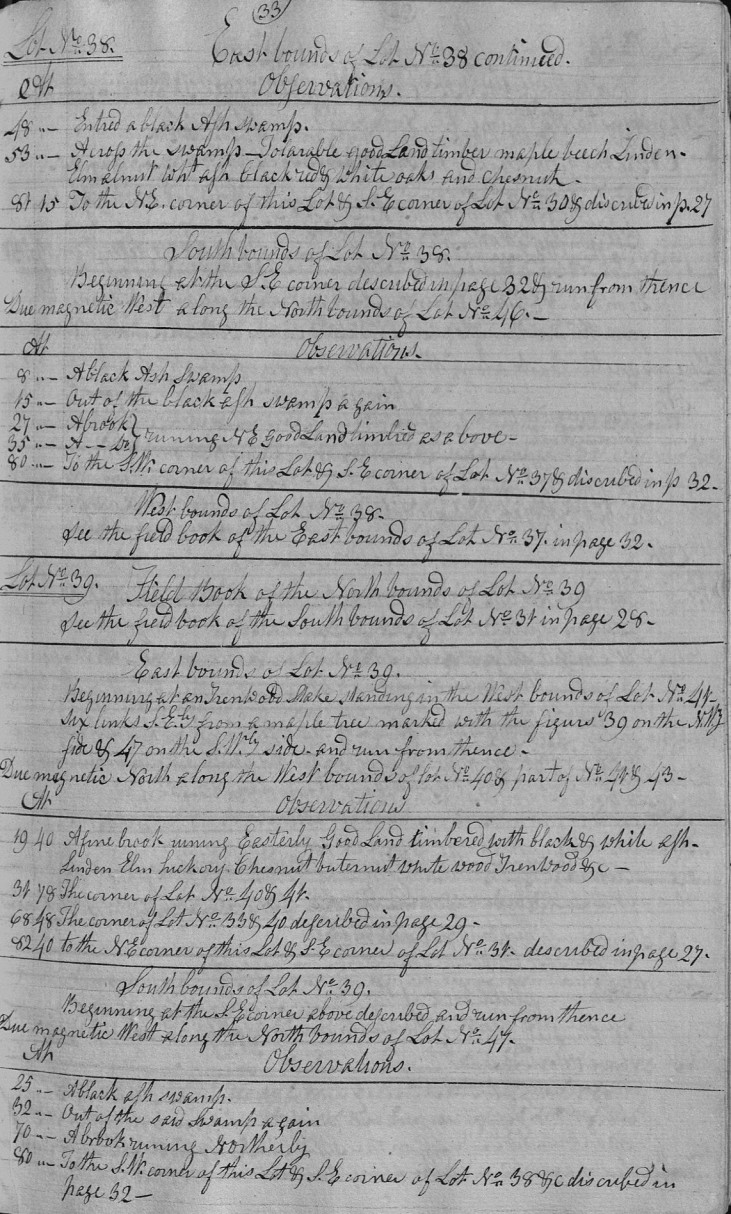 33
Lot No. 38. East bounds of Lot No. 38 continued.
At Observations.
48 " — Entred a black Ash swamp.
53 " — Across the swamp — Tolarable good Land timber maple beech Linden -
Elm walnut wht ash black red & white oaks and chesnut -
81 15 To the N.E. corner of this Lot & S.E corner of Lot No. 30 & discribed in p. 27
South bounds of Lot No. 38.
Beginning at the S.E corner described in page 32 & run from thence
Due magnetic West along the North bounds of Lot No. 46. —
At Observations.
8 " — A black Ash Swamp
15 " — Out of the black ash swamp again
27 " — A brook }
35 " — A — Do } runing NE good Land timbred as above -
80 " — To the S.W. corner of this Lot & S.E corner of Lot No. 37 & discribed in p 32 -
West bounds of Lot No. 38.
See the field book of the East bounds of Lot No. 37. in page 32 -
Lot No. 39. Field Book of the North bounds of Lot No. 39
See the field book of the South bounds of Lot No. 31 in page 28 -
East bounds of Lot No. 39.
Beginning at an Irenwood Stake standing in the West bounds of Lot No. 41 -
Six links S.Ely from a maple tree marked with the figurs 39 on the N.Wly
side & 47 on the S.Wly side and run from thence -
Due magnetic North along the West bounds of lot No. 40 & part of No. 41 & 43 -
At Observations
19 40 A fine brook runing Easterly Good Land timbered with black & while ash -
Linden Elm hickory Chesnut buternut white wood Irenwood &c —
31 78 The corner of Lot No. 40 & 41 -
68 48 The corner of Lot No. 33 & 40 described in page 29 -
82 40 to the NE corner of this Lot & S.E corner of Lot No. 31 - described in page 27 -
South bounds of Lot No. 39.
Beginning at the S.E corner above described and run from thence
Due magnetic West along the North bounds of Lot No. 47.
At Observations.
25 " — A black ash swamp.
32 " — Out of the said swamp again
70 " — A brook runing Northerly
80 " — To the S.W. corner of this Lot & S.E corner of Lot No. 38 &c discribed in
page 32 —